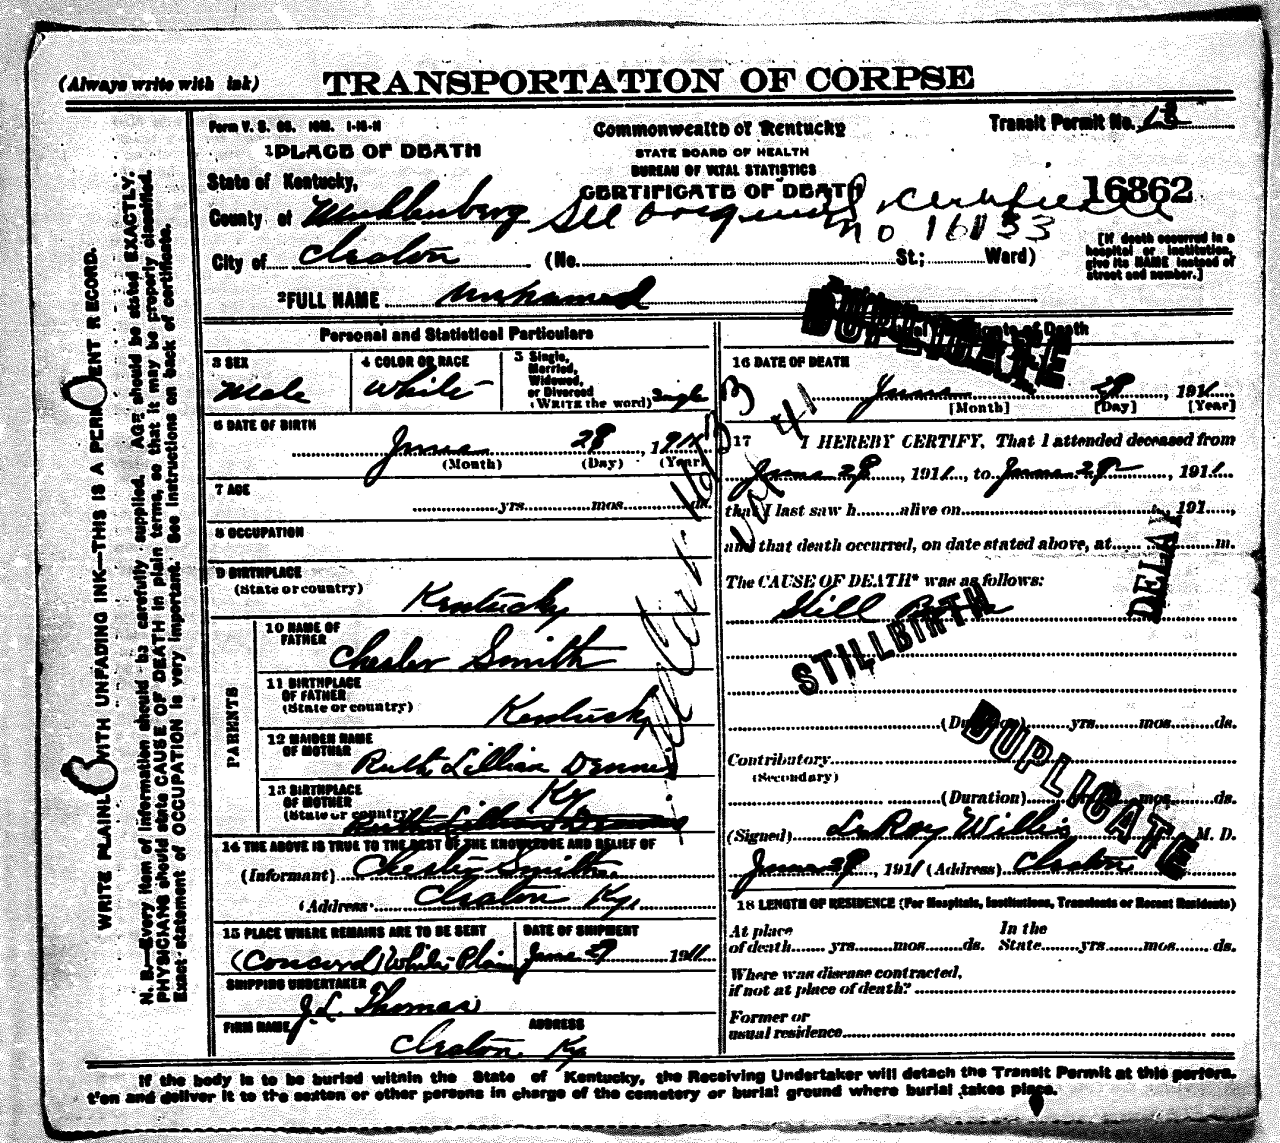 (Always write with ink)
TRANSPORTATION OF CORPSE
Form V. S. 1-10-11
Commonwealth of Kentucky
Transit Permit No.
1 PLACE OF DEATH
STATE BOARD OF HEALTH
BUREAU OF VITAL STATISTICS
State of Kentucky,
CERTIFICATE OF DEATH
16862
County of Muhlenberg
See original certificate
no 16133
City of Cleaton (No. St.; Ward)
[If death occurred in a
hospital or institution,
give its NAME instead of
street and number.]
2 FULL NAME unnamed
DUPLICATE
Personal and Statistical Particulars
of Death
3 SEX
Male
4 COLOR OR RACE
White
5 Single,
Married,
Widowed,
or Divorced
(WRITE the word) Single
6 DATE OF BIRTH
June 28, 1911
(Month) (Day) (Year)
7 AGE
yrs. mos. ds.
8 OCCUPATION
9 BIRTHPLACE
(State or country)
Kentucky
PARENTS
10 NAME OF
FATHER
Chester Smith
11 BIRTHPLACE
OF FATHER
(State or country)
Kentucky
12 MAIDEN NAME
OF MOTHER
Ruth Lillian Dennis
13 BIRTHPLACE
OF MOTHER
(State or country)
Ky
14 THE ABOVE IS TRUE TO THE BEST OF THE KNOWLEDGE AND BELIEF OF
(Informant) Chester Smith.
(Address Cleaton Ky,
15 PLACE WHERE REMAINS ARE TO BE SENT
(Concord) White Plains
DATE OF SHIPMENT
June 29 1911
SHIPPING UNDERTAKER
J. L. Thomas
FIRM NAME
ADDRESS
Cleaton, Ky
16 DATE OF DEATH
June 28, 1911
[Month] [Day] [Year]
17 I HEREBY CERTIFY, That I attended deceased from
June 28, 1911, to June 28, 1911.
that I last saw h alive on 191 ,
and that death occurred, on date stated above, at m.
The CAUSE OF DEATH* was as follows:
Still Born
STILLBIRTH
DELAY
(Duration) yrs. mos. ds.
DUPLICATE
Contributory
(Secondary)
(Duration) mos. ds.
(Signed) LeRoy Willis M. D.
June 29, 1911 (Address) Cleaton
18 LENGTH OF RESIDENCE (For Hospitals, Institutions, Transients or Recent Residents)
At place
of death yrs. mos. ds.
In the
State yrs. mos. ds.
Where was disease contracted,
if not at place of death?
Former or
usual residence
If the body is to be buried within the State of Kentucky, the Receiving Undertaker will detach the Transit Permit at this perfora-
t'on and deliver it to the sexton or other persons in charge of the cemetery or burial ground where burial takes place.
WRITE PLAINLY WITH UNFADING INK—THIS IS A PERMANENT RECORD.
N. B.—Every item of information should be carefully supplied. AGE should be stated EXACTLY.
PHYSICIANS should state CAUSE OF DEATH in plain terms, so that it may be properly classified.
Exact statement of OCCUPATION is very important. See instructions on back of certificate.